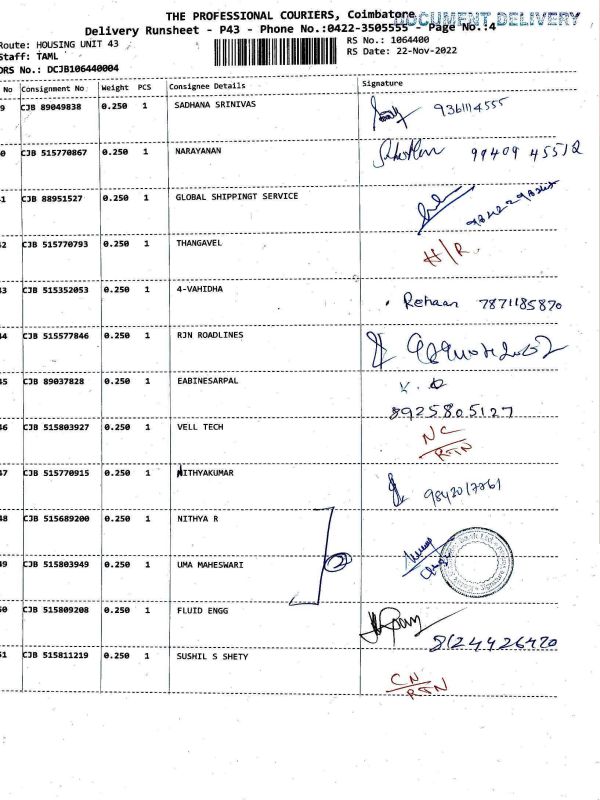 THE PROFESSIONAL COURIERS, Coimbatore
DOCUMENT DELIVERY
Delivery Runsheet - P43 - Phone No.:0422-3505555 - Page No.:4
Route: HOUSING UNIT 43 RS No.: 1064400
Staff: TAML RS Date: 22-Nov-2022
DRS No.: DCJB106440004
No Consignment No Weight PCS Consignee Details Signature
9 CJB 89049838 0.250 1 SADHANA SRINIVAS 9361114555
0 CJB 515770867 0.250 1 NARAYANAN 99409 45512
1 CJB 88951527 0.250 1 GLOBAL SHIPPINGT SERVICE
2 CJB 515770793 0.250 1 THANGAVEL H/R
3 CJB 515352053 0.250 1 4-VAHIDHA Rehaan 7871185870
4 CJB 515577846 0.250 1 RJN ROADLINES
5 CJB 89037828 0.250 1 EABINESARPAL
8925805127
6 CJB 515803927 0.250 1 VELL TECH NC
RTN
7 CJB 515770915 0.250 1 NITHYAKUMAR
8 CJB 515689200 0.250 1 NITHYA R
9 CJB 515803949 0.250 1 UMA MAHESWARI
0 CJB 515809208 0.250 1 FLUID ENGG
8124426420
1 CJB 515811219 0.250 1 SUSHIL S SHETY CN
RTN